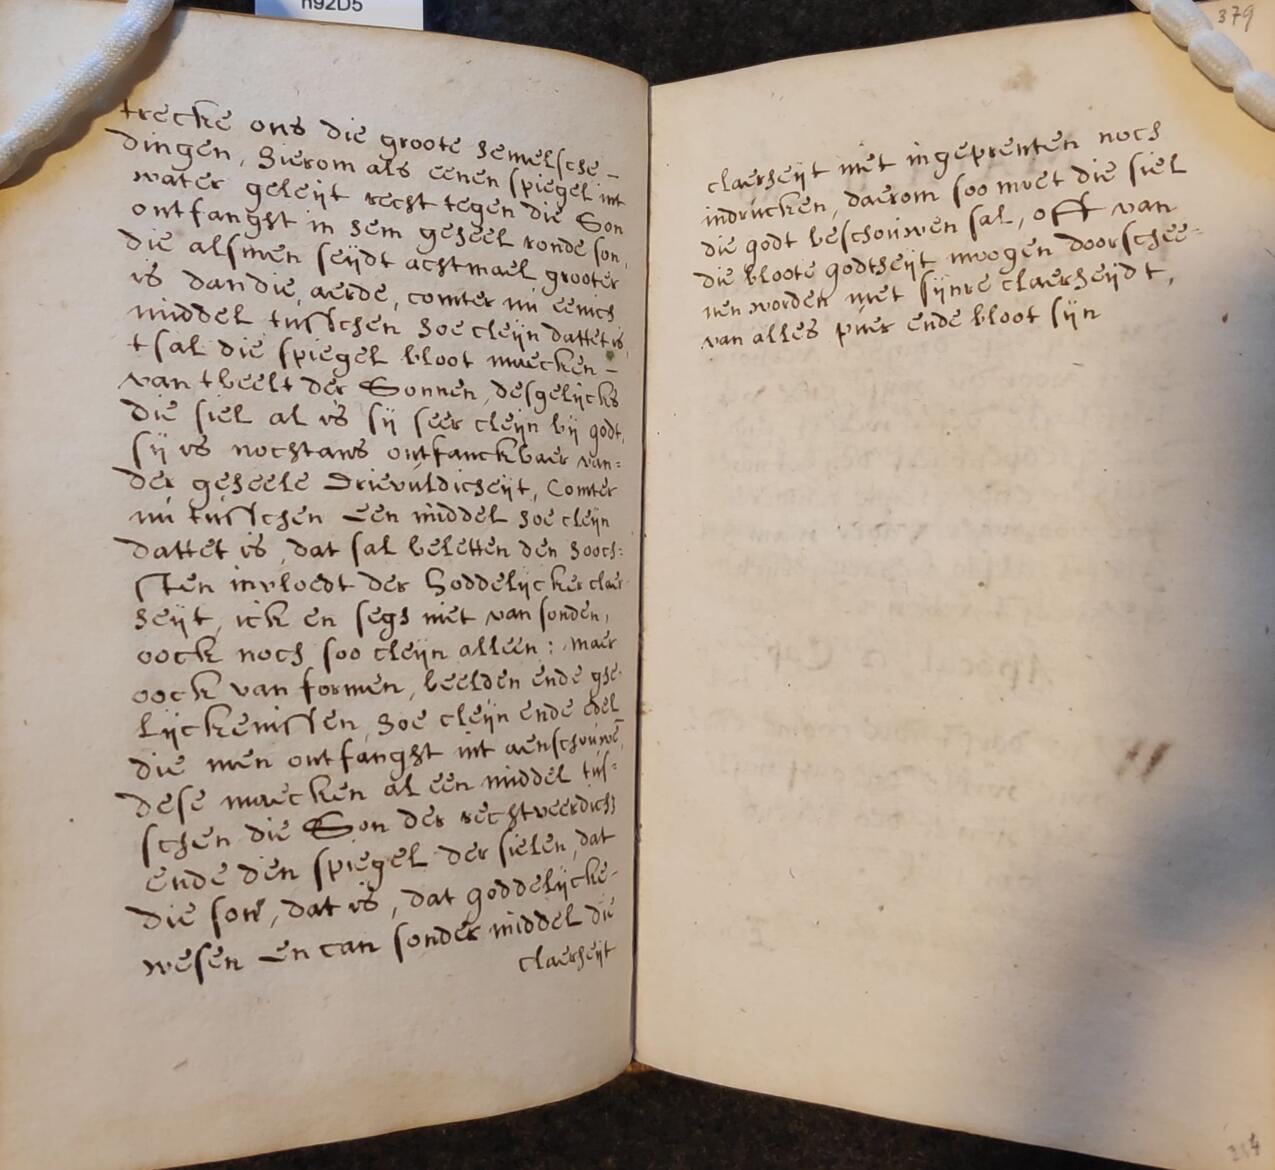 h92D5
379
trecke ons die groote hemelsche -
dingen, hierom als eenen spiegel int
water geleijt recht tegen die Son
ontfanght in hem geheel ronde son,
die alsmen seijdt achtmael grooter
is dandie, aerde, comter nu eenich
middel tusschen hoe cleijn dattet is,
tsal die spiegel bloot maecken -
van tbeelt der Sonnen, desgelijcks
die siel al is sij seer cleijn bij godt,
sij is nochtans ontfanckbaer van=
der geheele Drievuldicheijt, Comter
nu tusschen een middel hoe cleijn
dattet is, dat sal beletten den hooch=
sten invloedt der Goddelijcker claer
heijt, ick en segh niet van sonden,
oock noch soo cleijn alleen: maer
oock van formen, beelden ende ghe-
lijckenissen, hoe cleijn ende edel
die men ontfanght int aenschouwē,
dese maecken al een middel tus=
schen die Son der rechtveerdich
ende den spiegel der sielen, dat
die son, dat is, dat goddelijcke-
wesen en can sonder middel die
claerheijt
claerheijt niet ingeprenten noch
indrucken, daerom soo moet die siel
die godt beschouwen sal, off van
die bloote godtheijt moogen doorschee=
nen worden met sijnre claerheijdt,
van alles puer ende bloot sijn